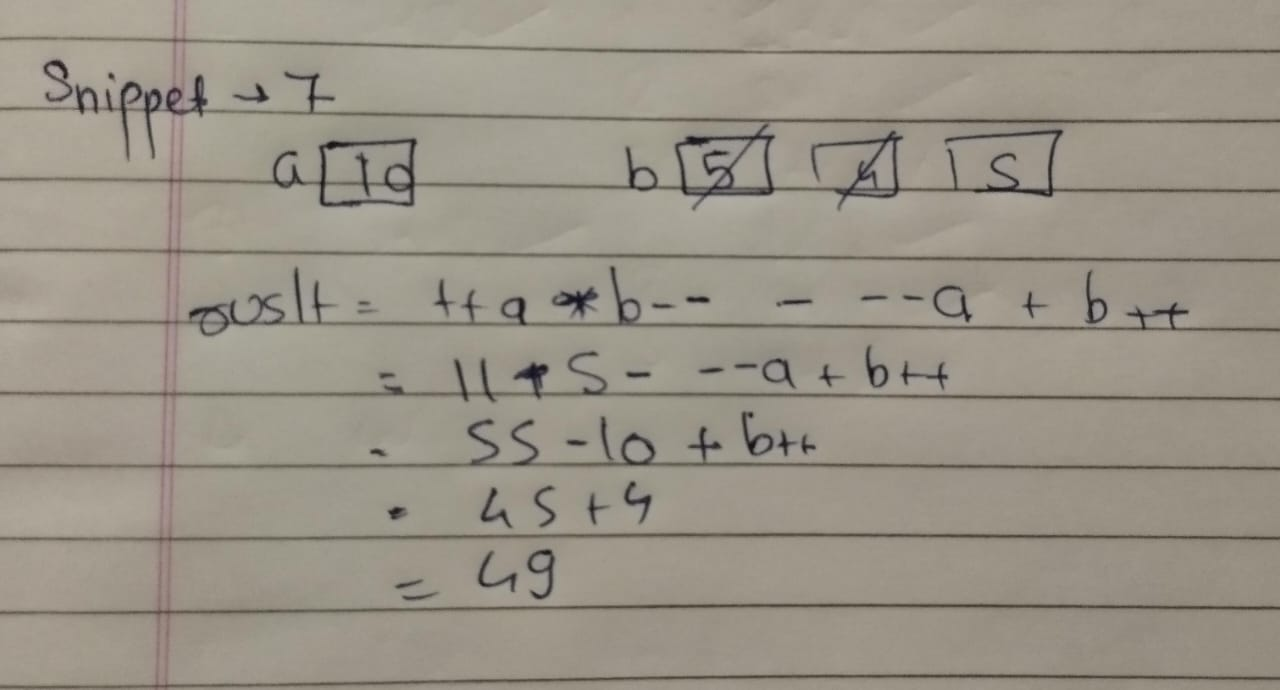 Snippet → 7
a 10 b 5 4 5
= ++a * b-- - --a + b++
= 11 * 5 - --a + b++
= 55 - 10 + b++
= 45 + 4
= 49